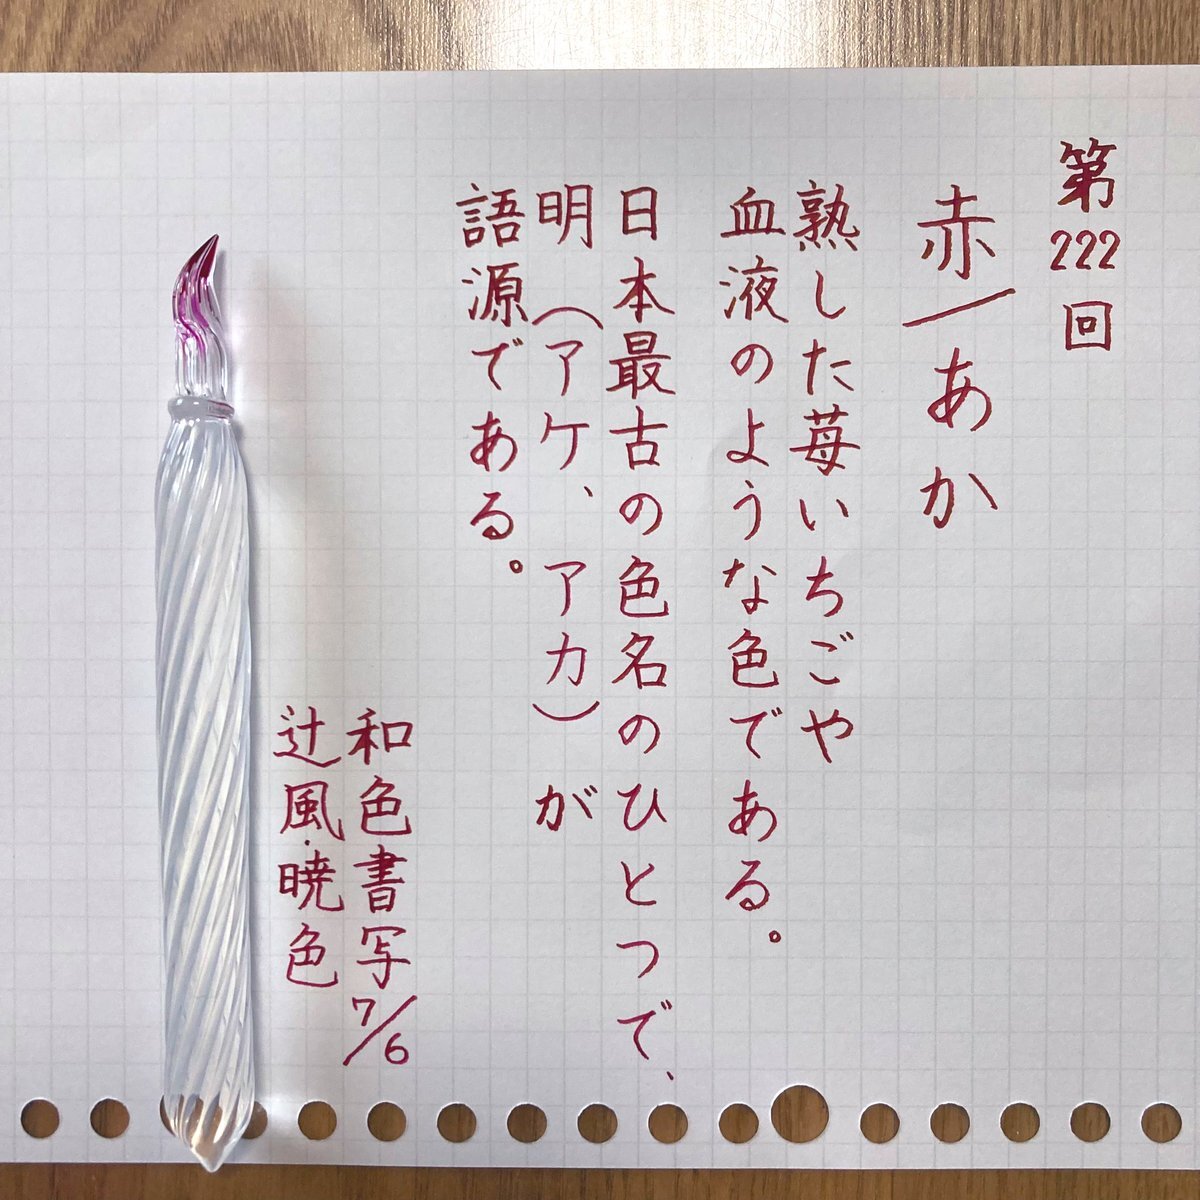 第222回
赤/あか
熟した苺いちごや
血液のような色である。
日本最古の色名のひとつで、
明（アケ、アカ）が
語源である。
和色書写7/6
辻風・暁色